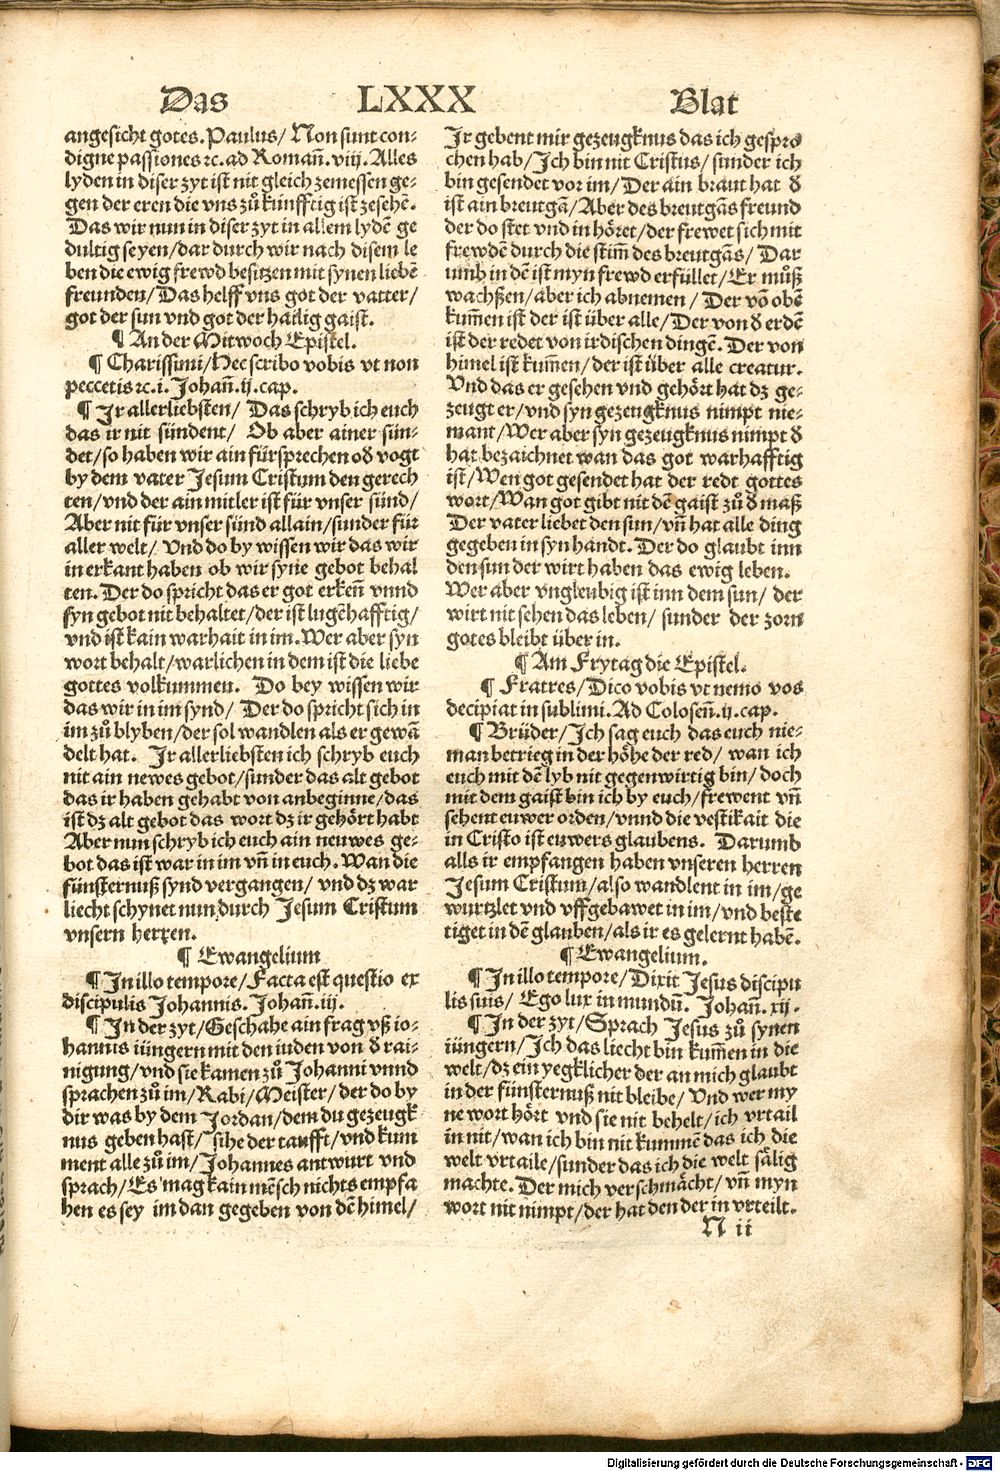 Das LXXX Blat
angesicht gotes. Paulus/ Non sunt con-
digne passiones ꝛc. ad Romañ. viij. Alles
lyden in diser zyt ist nit gleich zemessen ge-
gen der eren die vns zů künfftig ist zesehẽ.
Das wir nun in diser zyt in allem lydẽ ge
dultig seyen/dar durch wir nach disem le
ben die ewig frewd besitzen mit synen liebẽ
freunden/Das helff vns got der vatter/
got der sun vnd got der hailig gaist.
¶ An der Mitwoch Epistel.
¶ Charissimi/Hec scribo vobis vt non
peccetis ꝛc. i. Johañ. ij. cap.
¶ Ir allerliebsten/ Das schryb ich euch
das ir nit sündent/ Ob aber ainer sün-
det/so haben wir ain fürsprechen oð vogt
by dem vater Jesum Cristum den gerech
ten/vnd der ain mitler ist für vnser sünd/
Aber nit für vnser sünd allain/sunder für
aller welt/ Vnd do by wissen wir das wir
in erkant haben ob wir syne gebot behal
ten. Der do spricht das er got erkeñ vnnd
syn gebot nit behaltet/der ist lugẽhafftig/
vnd ist kain warhait in im. Wer aber syn
wort behalt/warlichen in dem ist die liebe
gottes volkummen. Do bey wissen wir
das wir in im synd/ Der do spricht sich in
im zů blyben/der sol wandlen als er gewã
delt hat. Ir allerliebsten ich schryb euch
nit ain newes gebot/sunder das alt gebot
das ir haben gehabt von anbeginne/das
ist dz alt gebot das wort dz ir gehört habt
Aber nun schryb ich euch ain neuwes ge-
bot das ist war in im vñ in euch. Wan die
fünsternuß synd vergangen/ vnd dz war
liecht schynet nun durch Jesum Cristum
vnsern herren.
¶ Ewangelium
¶ In illo tempore/Facta est questio ex
discipulis Johannis. Johañ. iij.
¶ In der zyt/Geschahe ain frag vß io-
hannis iüngern mit den iuden von ð rai-
nigung/vnd sie kamen zů Johanni vnnd
sprachen zů im/Rabi/Meister/der do by
dir was by dem Jordan/dem du gezeugk-
nus geben hast/Sihe der taufft/vnd kum
ment alle zů im/Johannes antwurt vnd
sprach/Es mag kain mẽsch nichts empfa
hen es sey im dan gegeben von dẽ himel/
Ir gebent mir gezeugknus das ich gespro
chen hab/Ich bin nit Cristus/sunder ich
bin gesendet vor im/Der ain braut hat ð
ist ain breutgã/Aber des breutgãs freund
der do stet vnd in höret/der frewet sich mit
frewdẽ durch die stim̃ des breutgãs/ Dar
umb in dẽ ist myn frewd erfüllet/Er můß
wachßen/aber ich abnemen/ Der võ obẽ
kum̃en ist der ist über alle/Der von ð erdẽ
ist der redet von irdischen dingẽ. Der von
himel ist kum̃en/der ist über alle creatur.
Vnd das er gesehen vnd gehört hat dz ge-
zeugt er/vnd syn gezeugknus nimpt nie-
mant/Wer aber syn gezeugknus nimpt ð
hat bezaichnet wan das got warhafftig
ist/Wen got gesendet hat der redt gottes
wort/Wan got gibt nit dẽ gaist zů ð maß
Der vater liebet den sun/vñ hat alle ding
gegeben in syn handt. Der do glaubt inn
den sun der wirt haben das ewig leben.
Wer aber vngleubig ist inn dem sun/ der
wirt nit sehen das leben/ sunder der zorn
gotes bleibt über in.
¶ Am Frytag die Epistel.
¶ Fratres/Dico vobis vt nemo vos
decipiat in sublimi. Ad Coloseñ. ij. cap.
¶ Brüder/Ich sag euch das euch nie-
man betrieg in der höhe der red/ wan ich
euch mit dẽ lyb nit gegenwirtig bin/ doch
mit dem gaist bin ich by euch/frewent vñ
sehent euwer orden/vnnd die vestikait die
in Cristo ist euwers glaubens. Darumb
alls ir empfangen haben vnseren herren
Jesum Cristum/also wandlent in im/ge
wurtzlet vnd vffgebawet in im/vnd beste
tiget in dẽ glauben/als ir es gelernt habẽ.
¶ Ewangelium.
¶ In illo tempore/Dixit Jesus discipu
lis suis/ Ego lux in mundũ. Johañ. xij.
¶ In der zyt/Sprach Jesus zů synen
iüngern/Ich das liecht bin kum̃en in die
welt/dz ein yegklicher der an mich glaubt
in der fünsternuß nit bleibe/ Vnd wer my
ne wort hört vnd sie nit behelt/ich vrtail
in nit/wan ich bin nit kummẽ das ich die
welt vrtaile/sunder das ich die welt sälig
machte. Der mich verschmächt/ vñ myn
wort nit nimpt/der hat den der in vrteilt.
N ii
Digitalisierung gefördert durch die Deutsche Forschungsgemeinschaft - DFG